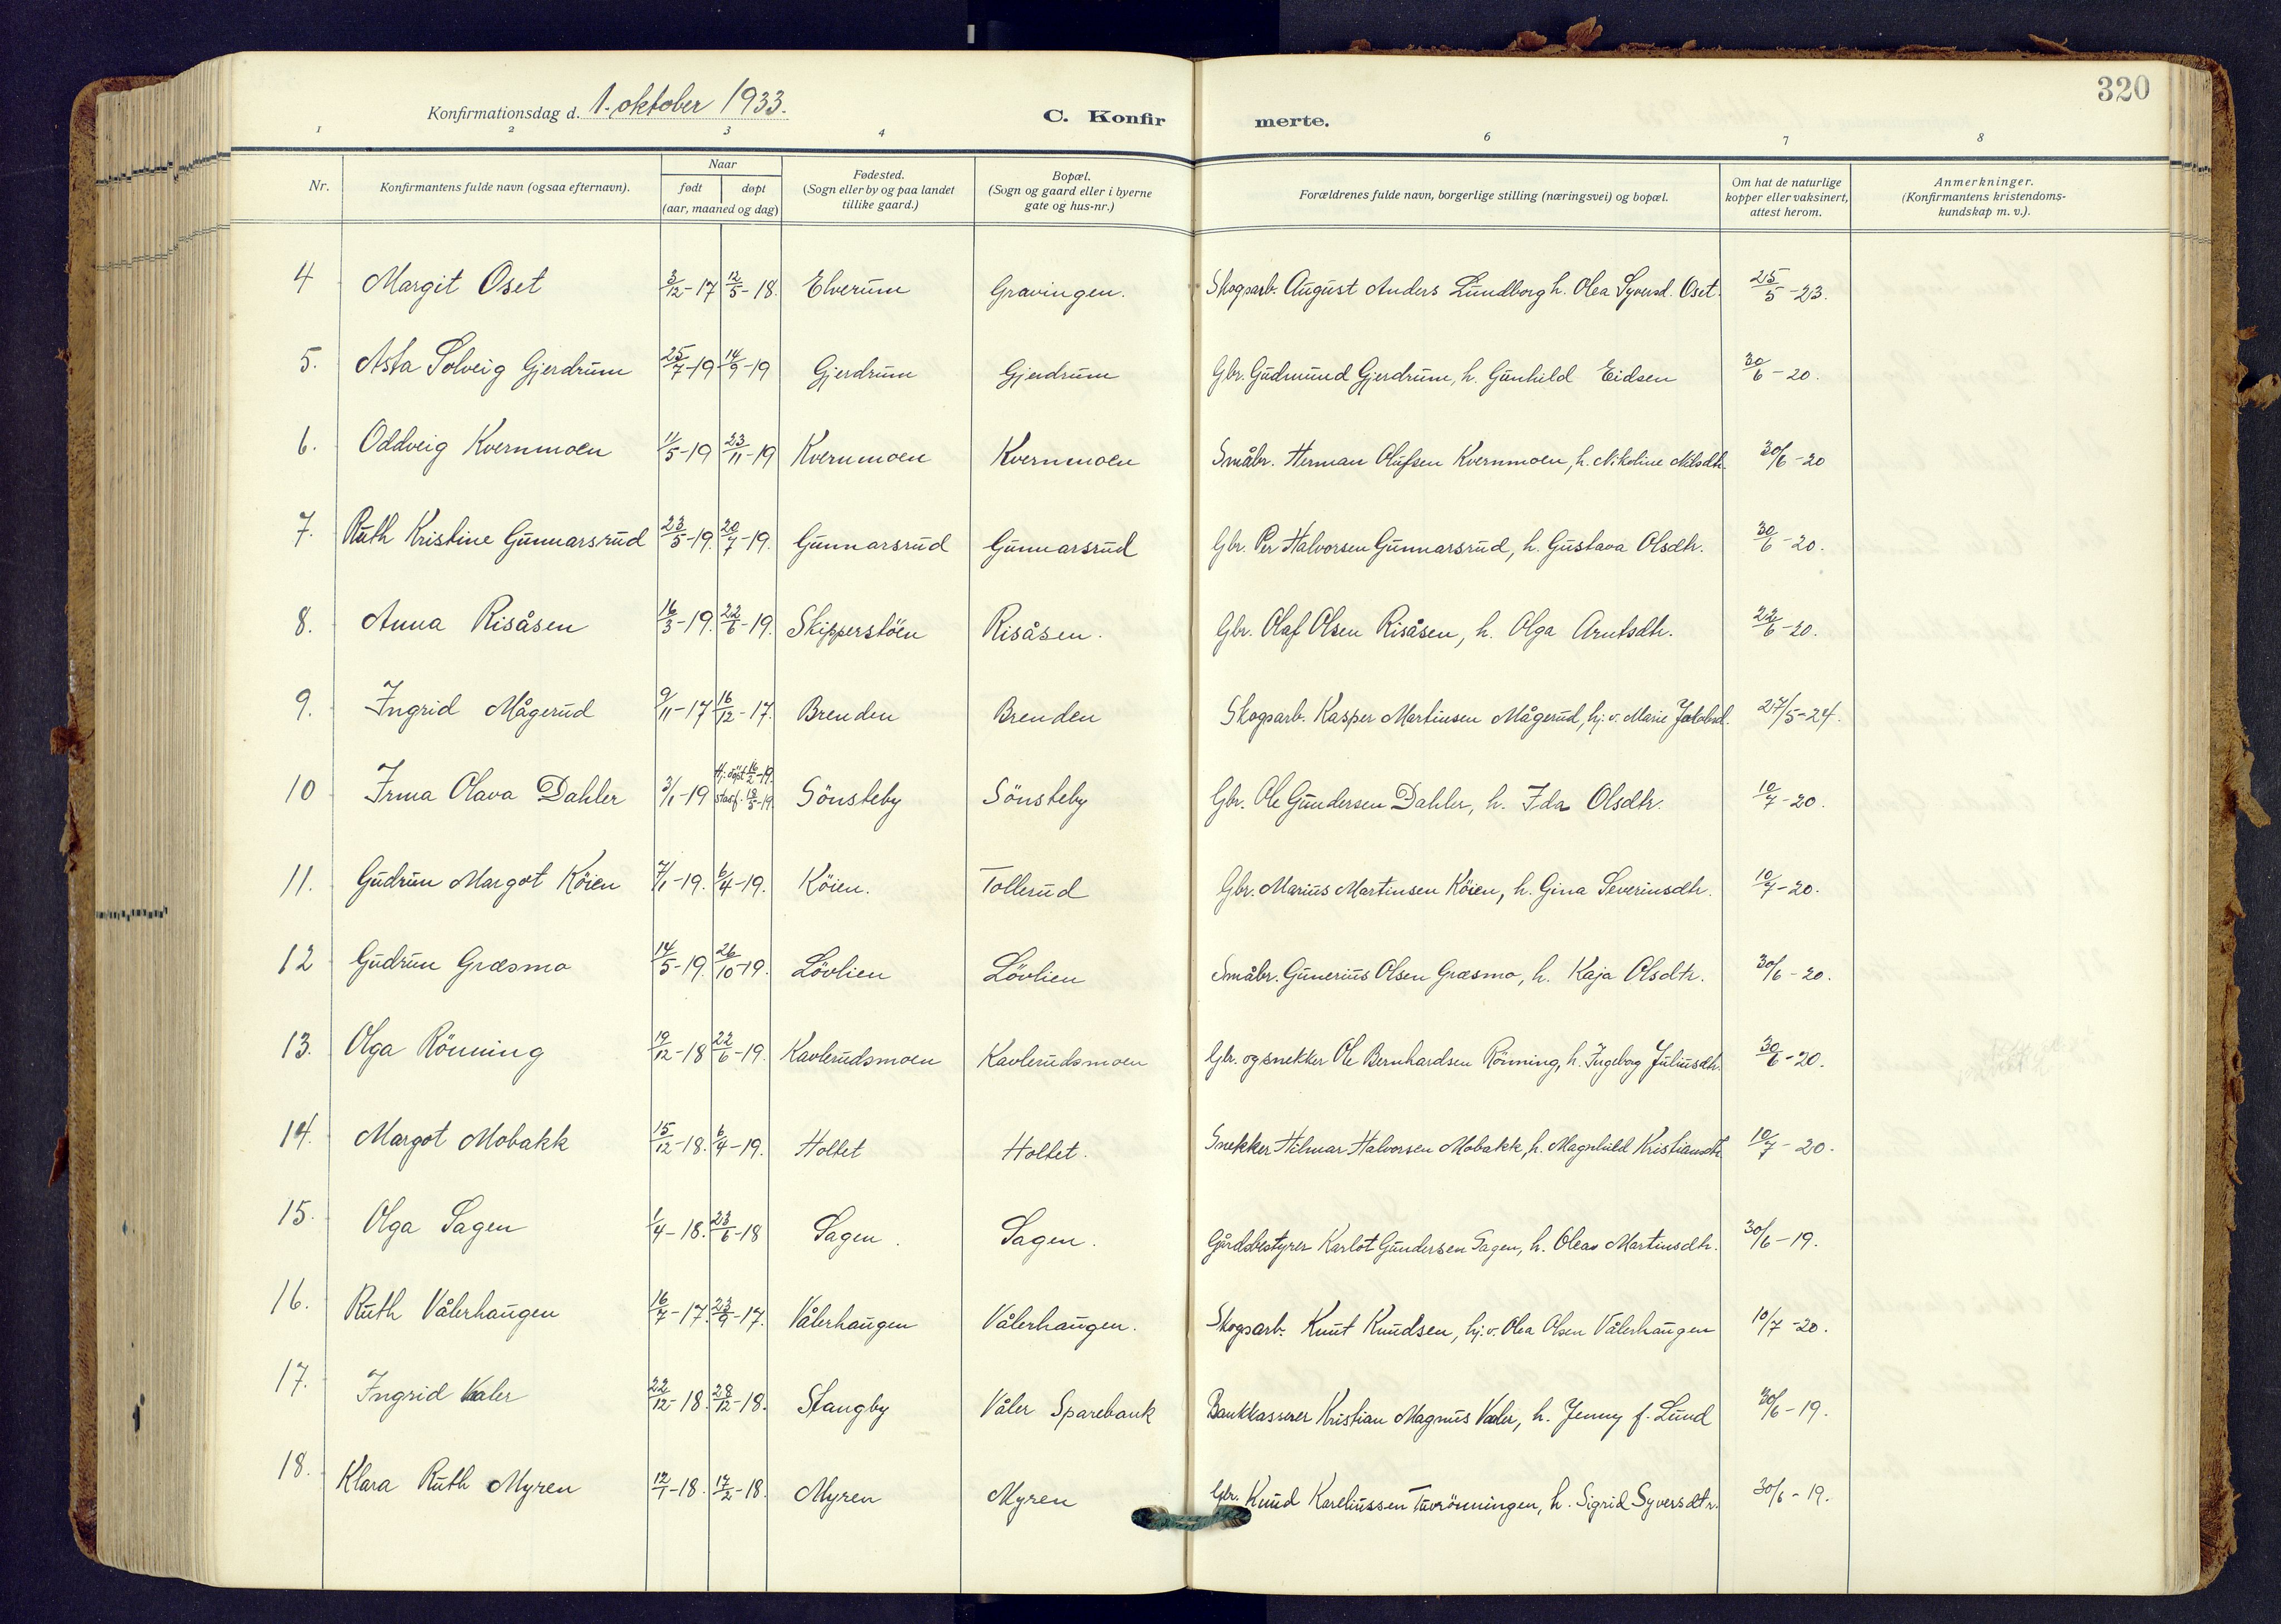 320
Konfirmationsdag d. 1. oktober 1933.
C. Konfirmerte.
1 2 3 4 6 7 8
Nr. | Konfirmantens fulde navn (ogsaa efternavn). | Naar født | døpt (aar, maaned og dag) | Fødested. (Sogn eller by og paa landet tillike gaard.) | Bopæl. (Sogn og gaard eller i byerne gate og hus-nr.) | Forældrenes fulde navn, borgerlige stilling (næringsvei) og bopæl. | Om hat de naturlige kopper eller vaksinert, attest herom. | Anmerkninger. (Konfirmantens kristendomskundskap m. v.).
4 Margit Oset 3/12-17 12/5-18. Elverum Gravingen. Skogsarb. August Anders Lundborg h. Olea Syversd. Oset. 25/5-23.
5. Asta Solveig Gjerdrum 25/7-19 14/9-19 Gjerdrum Gjerdrum Gbr. Gudmund Gjerdrum, h. Gunhild Eidsen 30/6-20.
6. Oddveig Kvernmoen 11/5-19 23/11-19 Kvernmoen Kvernmoen Småbr. Herman Olufsen Kvernmoen, h. Nikoline Nilsdtr. 30/6-20
7. Ruth Kristine Gunnarsrud 23/5-19. 20/7-19. Gunnarsrud Gunnarsrud Gbr. Per Halvorsen Gunnarsrud, h. Gustava Olsdtr. 30/6-20.
8. Anna Risåsen 16/3-19. 22/6-19. Skipperstöen Risåsen. Gbr. Olaf Olsen Risåsen, h. Olga Arntsdtr. 22/6-20.
9. Ingrid Mågerud 9/11-17 16/12-17. Brenden Brenden Skogsarb. Kasper Martinsen Mågerud, hj. v. Marie Jakobsd. 27/5-24.
10 Irma Olava Dahler 3/1-19 Hj. döpt 16/2-19. stadf. 18/5-19 Sönsteby Sönsteby Gbr. Ole Gundersen Dahler, h. Ida Olsdtr. 10/7-20.
11. Gudrun Margot Köien 7/1-19. 6/4-19. Köien. Tollerud Gbr. Marius Martinsen Köien, h. Gina Severinsdtr. 10/7-20.
12 Gudrun Græsmo 14/5-19. 26/10-19. Lövlien Lövlien Småbr. Gunerius Olsen Græsmo, h. Kaja Olsdtr. 30/6-20.
13. Olga Rönning 19/12-18 22/6-19. Kavlerudsmoen Kavlerudsmoen Gbr. og snekker Ole Bernhardsen Rönning, h. Ingeborg Juliusdtr. 30/6-20.
14. Margot Mobakk 15/12-18. 6/4-19. Holtet Holtet. Snekker Hilmar Halvorsen Mobakk, h. Magnhild Kristiansdtr. 10/7-20.
15. Olga Sagen 1/4-18. 23/6-18 Sagen. Sagen. Gårdsbestyrer Karlot Gundersen Sagen, h. Olea Martinsdtr. 30/6-19.
16. Ruth Vålerhaugen 16/7-17. 23/9-17. Vålerhaugen Vålerhaugen. Skogsarb. Knut Knudsen, hj. v. Olea Olsen Vålerhaugen 10/7-20.
17. Ingrid Vaaler 22/12-18. 28/12-18. Stangby Våler Sparebank Bankkasserer Kristian Magnus Vaaler, h. Jenny f. Lund 30/6-19.
18. Klara Ruth Myren 12/1-18. 17/2-18. Myren Myren Gbr. Knud Kareliussen Tuvrönningen, h. Sigrid Syversdtr. 30/6-19.